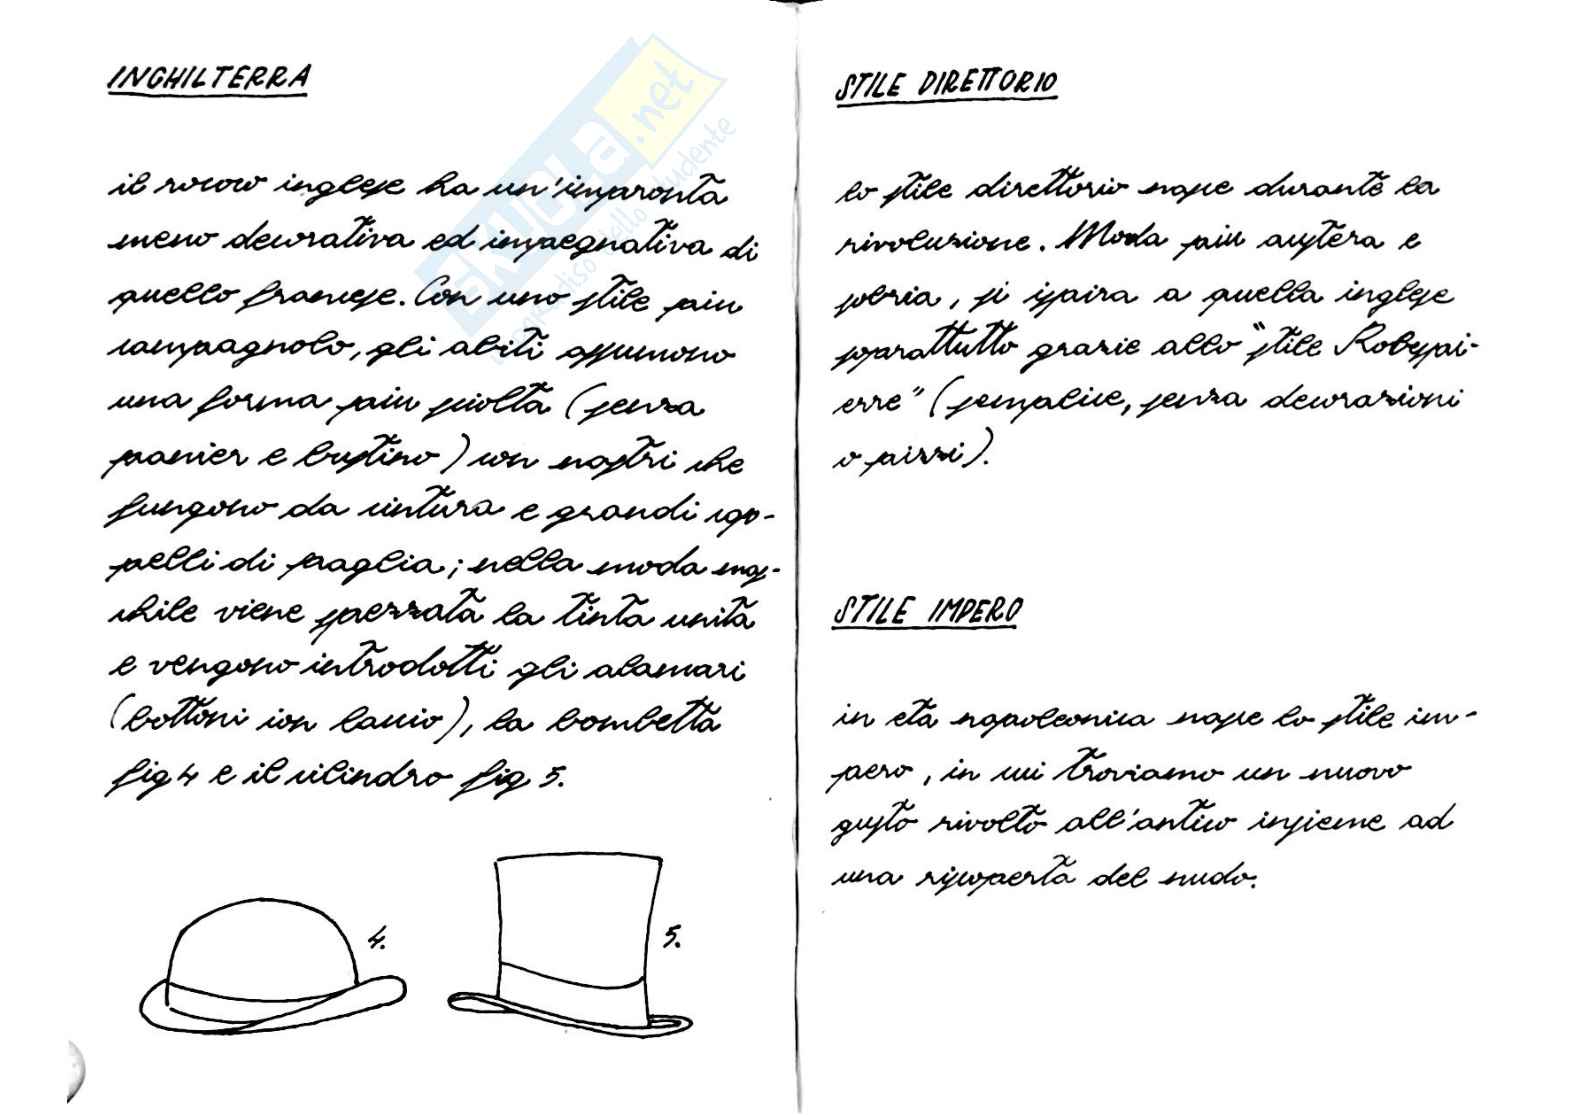 INGHILTERRA
il rococo inglese ha un'impronta
meno decorativa ed impegnativa di
quello francese. Con uno stile piu
campagnolo, gli abiti assumono
una forma piu sciolta (senza
panier e bustino) con nastri che
fungono da cintura e grandi cap-
pelli di paglia; nella moda mas-
chile viene spezzata la tinta unita
e vengono introdotti gli alamari
(bottoni con laccio), la bombetta
fig 4 e il cilindro fig 5.
4.
5.
STILE DIRETTORIO
lo stile direttorio nasce durante la
rivoluzione. Moda piu austera e
sobria, si ispira a quella inglese
soprattutto grazie allo "stile Robespi-
erre" (semplice, senza decorazioni
o pizzi).
STILE IMPERO
in età napoleonica nasce lo stile im-
pero, in cui troviamo un nuovo
gusto rivolto all'antico insieme ad
una riscoperta del nudo.
SKUOLA.net
paradiso dello studente